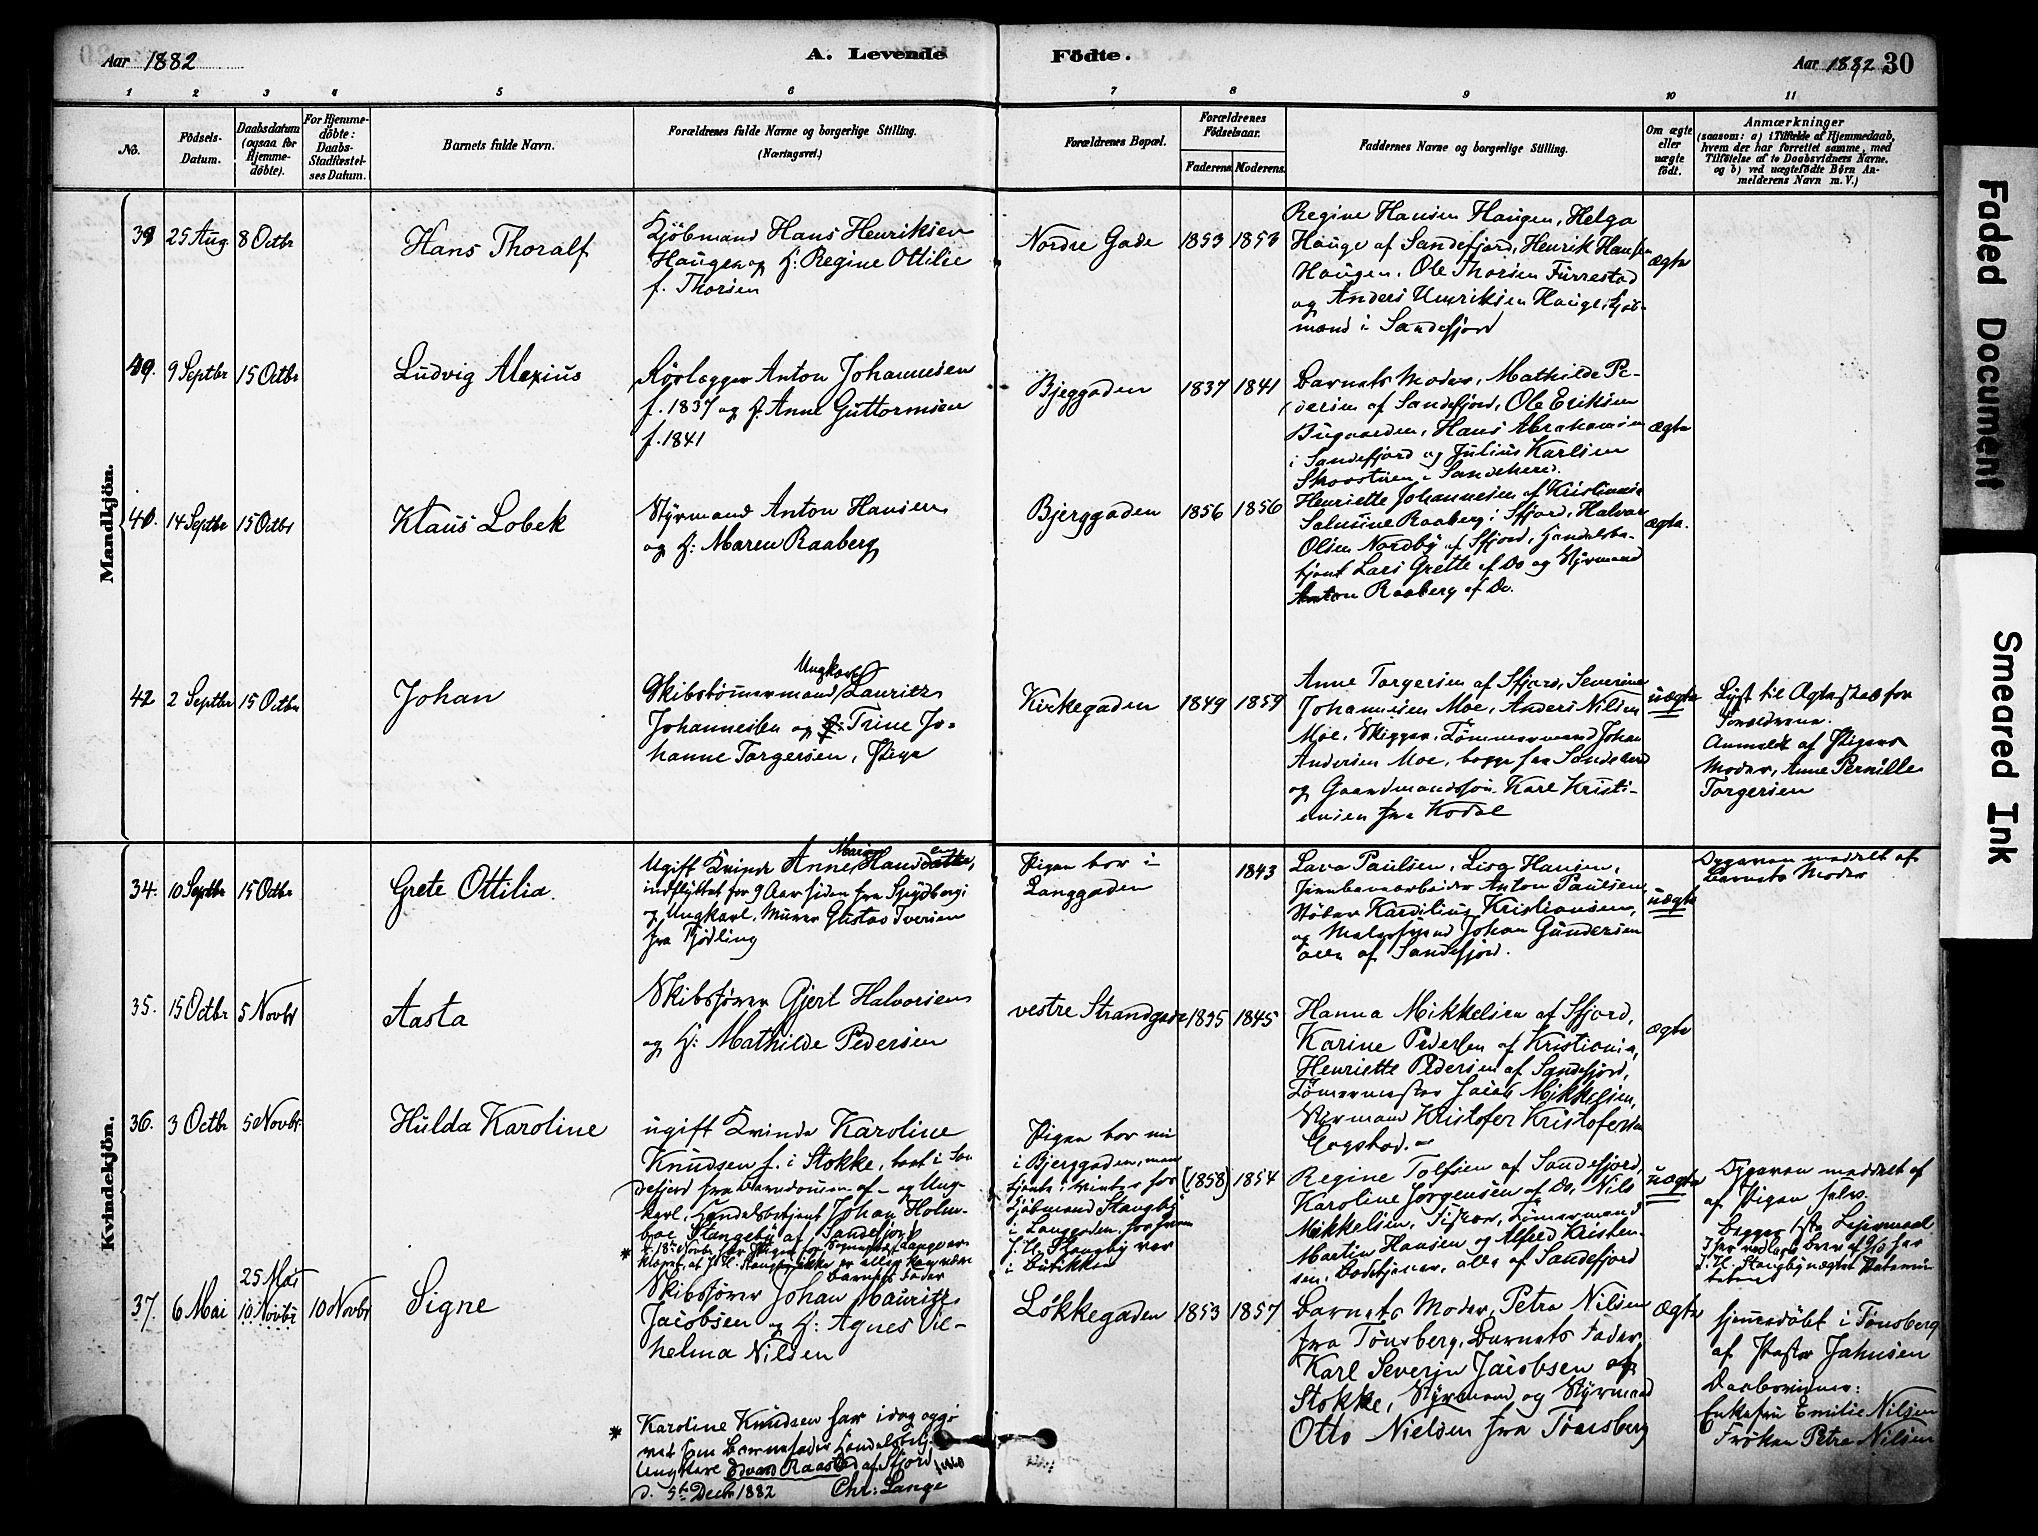 Aar 1882
A. Levende
Födte.
Aar 1882
30
1 2 3 4 5 6 7 8 9 10 11
No.
Födsels-
Datum.
Daabsdatum
(ogsaa for
Hjemme-
döbte).
For Hjemme-
döbte:
Daabs-
Stadfæstel-
ses Datum.
Barnets fulde Navn.
Forældrenes fulde Navne og borgerlige Stilling.
(Næringsvei.)
Forældrenes Bopæl.
Forældrenes
Födselsaar.
Faderens. Moderens.
Faddernes Navne og borgerlige Stilling.
Om ægte
eller
uægte
födt.
Anmærkninger
(saasom: a) i Tilfælde af Hjemmedaab,
hvem der har forrettet samme, med
Tilföielse af to Daabsvidners Navne,
og b) ved uægtefödte Börn An-
melderens Navn m.V.)
Mandkjön.
39 25 Aug. 8 Octbr
Hans Thoralf
Kjöbmand Hans Henriksen
Haugen og H: Regine Ottilie
f. Thorsen
Nordre Gade
1853 1853
Regine Hansen Haugen, Helga
Hauge af Sandefjord, Henrik Hansen
Haugen, Ole Thorsen Furrestad
og Anders Henriksen Hauge, Kjöb-
mænd i Sandefjord
ægte
9 Septbr 15 Octbr
Ludvig Alexius
Rörlægger Anton Johannesen
f. 1837 og H. Anne Guttormsen
f. 1841
Bjeggaden
1837 1841
Barnets Moder, Mathilde Pe-
dersen af Sandefjord, Ole Eriksen
Bugaarden, Hans Abrahamsen
i Sandefjord og Julius Karlsen
i Sandehered.
ægte
14 Septbr 15 Octbr
Klaus Lobek
Styrmand Anton Hansen
og H: Maren Raaberg
Bjerggaden
1856 1856
Henriette Johannesen af Kristiania
Raaberg i Sfjord, Halvor
Olsen Nordby af Sfjord, Handelsbe-
tjent Lars Grette af Do og Styrmand
Anton Raaberg af Do.
ægte.
42 2 Septbr 15 Octbr
Johan
Ungkarl
Skibstömmermand Lauritz
Johannessen og Trine Jo-
hanne Torgersen, Pige
Kirkegaden
1849 1859
Anne Torgersen af Sfjord, Severine
Johannesen Moe, Anders Nilsen
Moe, Skigger, Tömmermand Johan
Andersen Moe, begge fra Sandehered
og Gaardmandssön Karl Kristi-
ansen fra Kodal
uægte
Lyst til Ægteskab for
Forældrene.
Anmeldt af Pigens
Moder, Anne Pernille
Torgersen
Kvindekjön.
34. 10 Septbr 15 Octbr
Grete Ottilia.
Ugift Kvinde Anne Marie Hansen
indflyttet for 9 Aar siden fra
og Ungkarl, Murer Gustav Iversen
fra Tjödling
Pigen bor i
Langgaden
1843
Lava Paulsen, Lisa Hansen,
Jernbanearbeider Anton Paulsen,
Stöber Karelius Kristiansen,
og Malersvend Johan Gundersen
alle af Sandefjord.
uægte
Opgaven meddelt af
Barnets Moder
35. 15 Octbr 5 Novbr
Aasta
Skibsförer Gjert Halvorsen
og H: Mathilde Pedersen
vestre Strandgade
1835 1845
Hanna Mikkelsen af Sfjord,
Karine Pedersen af Kristiania,
Henriette Pedersen af Sandefjord,
Tömmermester Jacob Mikkelsen,
Styrmand Kristofer Kristofersen
Gogstad.
ægte
36. 3 Octbr 5 Novbr.
Hulda Karoline
ugift Kvinde Karoline
Knudsen f. i Stokke, boet i San-
defjord fra Barndommen af - og Ung-
karl, Handelsbetjent Johan Holm-
boe Stangeby af Sandefjord
Pigen bor nu
i Bjerggaden, men
tjente i Vinter hos
Kjöbmand Stangeby
i Langgaden, hos hvem
J. H. Stangby var
i Butikken
(1858) 1854
Regine Tolfsen af Sandefjord,
Karoline Jörgensen af Do, Nils
Mikkelsen, Fisker, Tömmermand
Martin Hansen og Alfred Kristen-
sen, Bodtjener, alle af Sandefjord
uægte
Opgaven meddelt af
af Pigen selv.
Begges 1ste Leiermaal
37. 6 Mai 25 Mai
10 Novbr 10 Novbr
Signe
Skibsförer Johan Mauritz
Jacobsen og H: Agnes Vil-
helma Nilsen
Lökkegaden
1853 1857
Barnets Moder, Petra Nilsen
fra Tönsberg, Barnets Fader,
Karl Severin Jacobsen af
Stokke, Styrmand og Styrmand
Otto Nielsen fra Tönsberg
Ægte
hjemmedöbt i Tönsberg
af Pastor Jahnsen
Daabsvidner:
Enkefru Emilie Nilsen
Fröken Petra Nilsen
* Karoline Knudsen har idag opgi-
vet som Barnefader Handelsbetj.
Ungkarl Edvard Raastad af Sfjord
d. 5te Decbr 1882 Chr: Lange
Faded Document
Smeared Ink